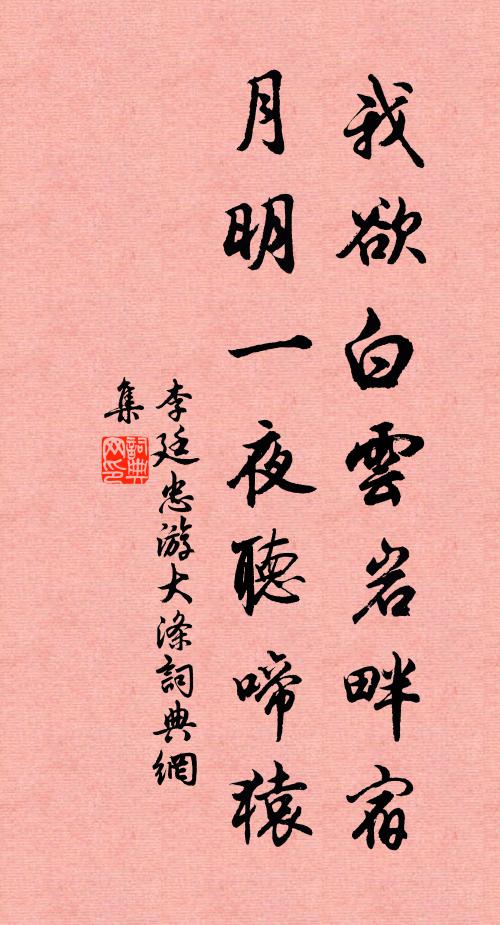 我欲白雲岩畔宿
月明一夜聽啼猿
李廷忠游大滌詞典網
集
詞典網印